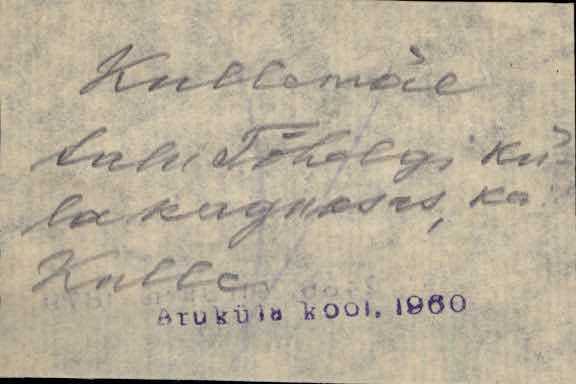 Kullemäe
talu Tõhelgi kü-
la kagunosas, ka
Kulle
Aruküla kool. 1960